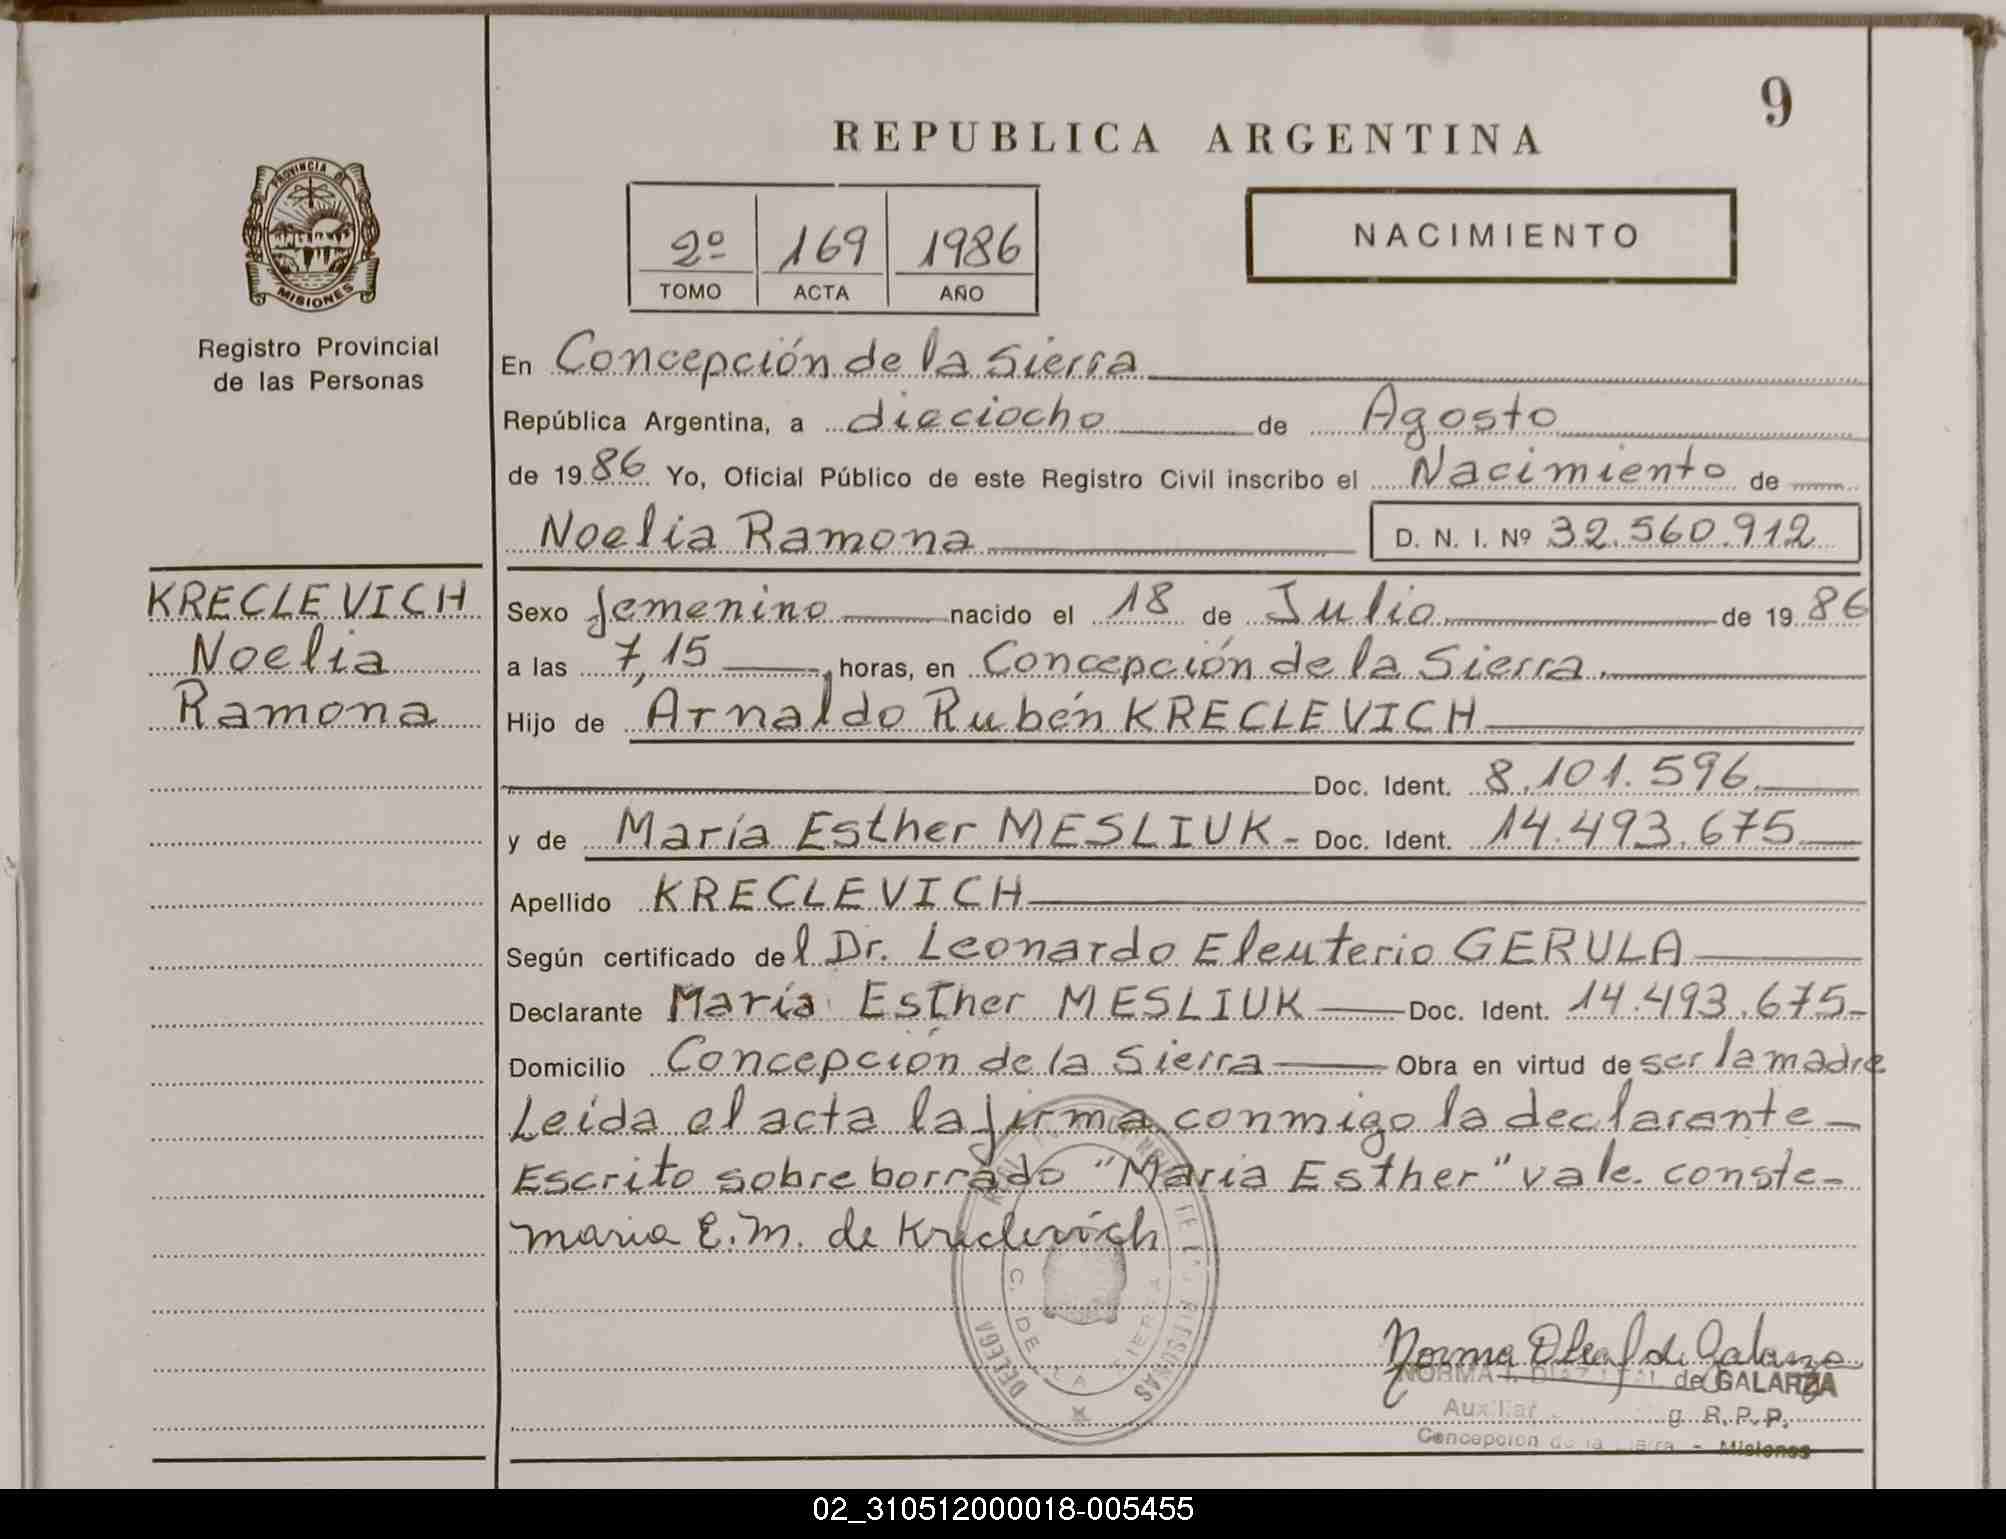 9
REPUBLICA ARGENTINA
PROVINCIA DE
MISIONES
2º 169 1986
TOMO ACTA AÑO
NACIMIENTO
Registro Provincial
de las Personas
En Concepción de la Sierra
República Argentina, a dieciocho de Agosto
de 1986 Yo, Oficial Público de este Registro Civil inscribo el Nacimiento de
Noelia Ramona D. N. I. Nº 32.560.912
KRECLEVICH
Noelia
Ramona
Sexo femenino nacido el 18 de Julio de 1986
a las 7,15 horas, en Concepción de la Sierra.
Hijo de Arnaldo Rubén KRECLEVICH
Doc. Ident. 8.101.596
y de María Esther MESLIUK - Doc. Ident. 14.493.675
Apellido KRECLEVICH
Según certificado del Dr. Leonardo Eleuterio GERULA
Declarante María Esther MESLIUK Doc. Ident. 14.493.675-
Domicilio Concepción de la Sierra Obra en virtud de ser la madre
Leída el acta la firma conmigo la declarante-
Escrito sobre borrado "María Esther" vale. conste-
maria E. M. de Kreclevich
C. DE LA SIERRA
Norma de Galarza
NORMA I. de GALARZA
Auxiliar g. R. P. P.
Concepcion de la Sierra - Misiones
02_310512000018-005455